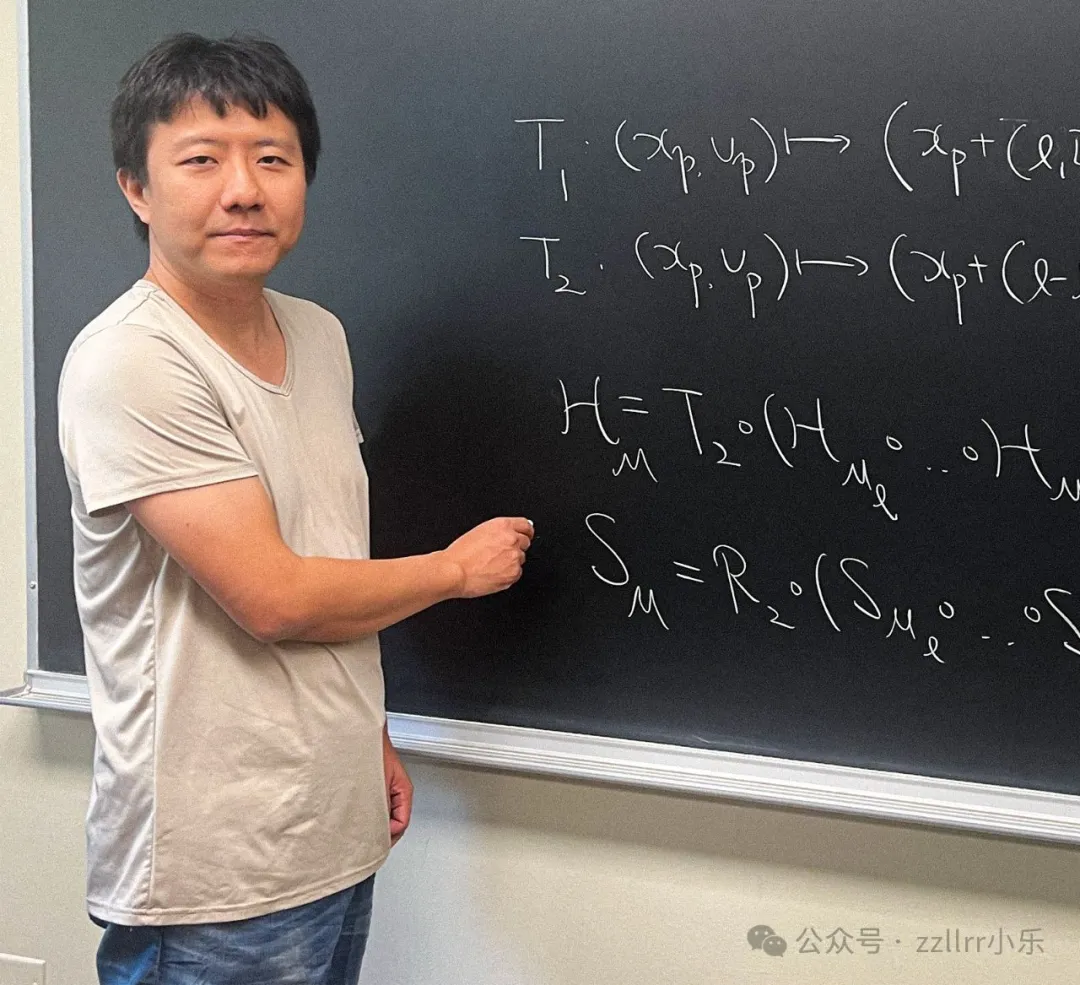 T₁ : (xₚ, υₚ) ↦ (xₚ + (ℓ,
T₂ : (xₚ, υₚ) ↦ (xₚ + (ℓ-
H_μ = T₂ ∘ (H_{μ_ℓ} ∘ .. ∘) H_μ
S_μ = R₂ ∘ (S_{μ_ℓ} ∘ ... ∘ S
公众号 · zzllrr小乐